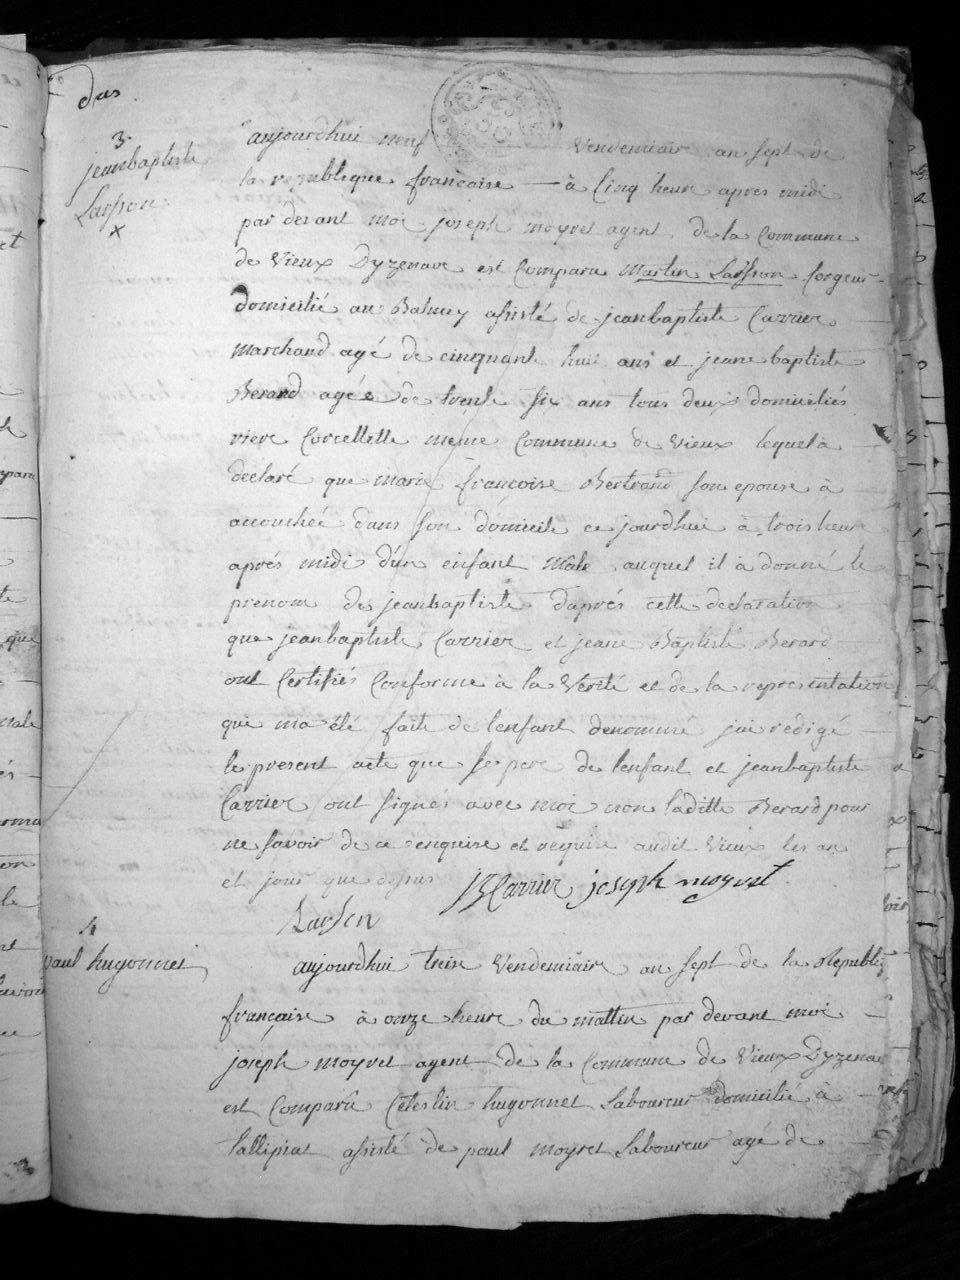 dus
3
jeanbaptiste
Larsson
x
aujourdhui neuf Vendemiaire an sept de
la republique francaise — à Cinq heure apres midi
par devant moi joseph moyret agent de la Commune
de Vieux Dyzenave est Comparu Martin Larsson forgeur
domicilié au Balmey assisté de jeanbaptiste Carrier
Marchand agé de cinquante huit ans et jeane baptiste
Berand agée de trente six ans tous deux domiciliés
riere Corcellette meme Commune de Vieux lequel à
declaré que marie françoise Bertrand son epouse à
accouchée dans son domicile ce jourdhui à trois heure
aprés midi d'un enfant Mâle auquel il à donné le
prenom de jeanbaptiste d'aprés cette declaration
que jeanbaptiste Carrier et jeane Baptiste Berard
ont Certifiés Conforme à la Verité et de la representation
que ma été faite de lenfant denommé jai redigé
le present acte que se pere de lenfant et jeanbaptiste
Carrier ont signés avec moi non laditte Berard pour
ne savoir de ce enquise et requise audit Vieux les an
et jour que dessus JBCarrier joseph moyret
Larson
4
paul hugonnet
aujourdhui treize Vendemiaire an sept de la Republi
française à onze heure du mattin par devant moi
joseph moyret agent de la Commune de Vieux Dyzenave
est Comparû hugonnet Laboureur domicilié à
assisté de paul moyret Laboureur agé de